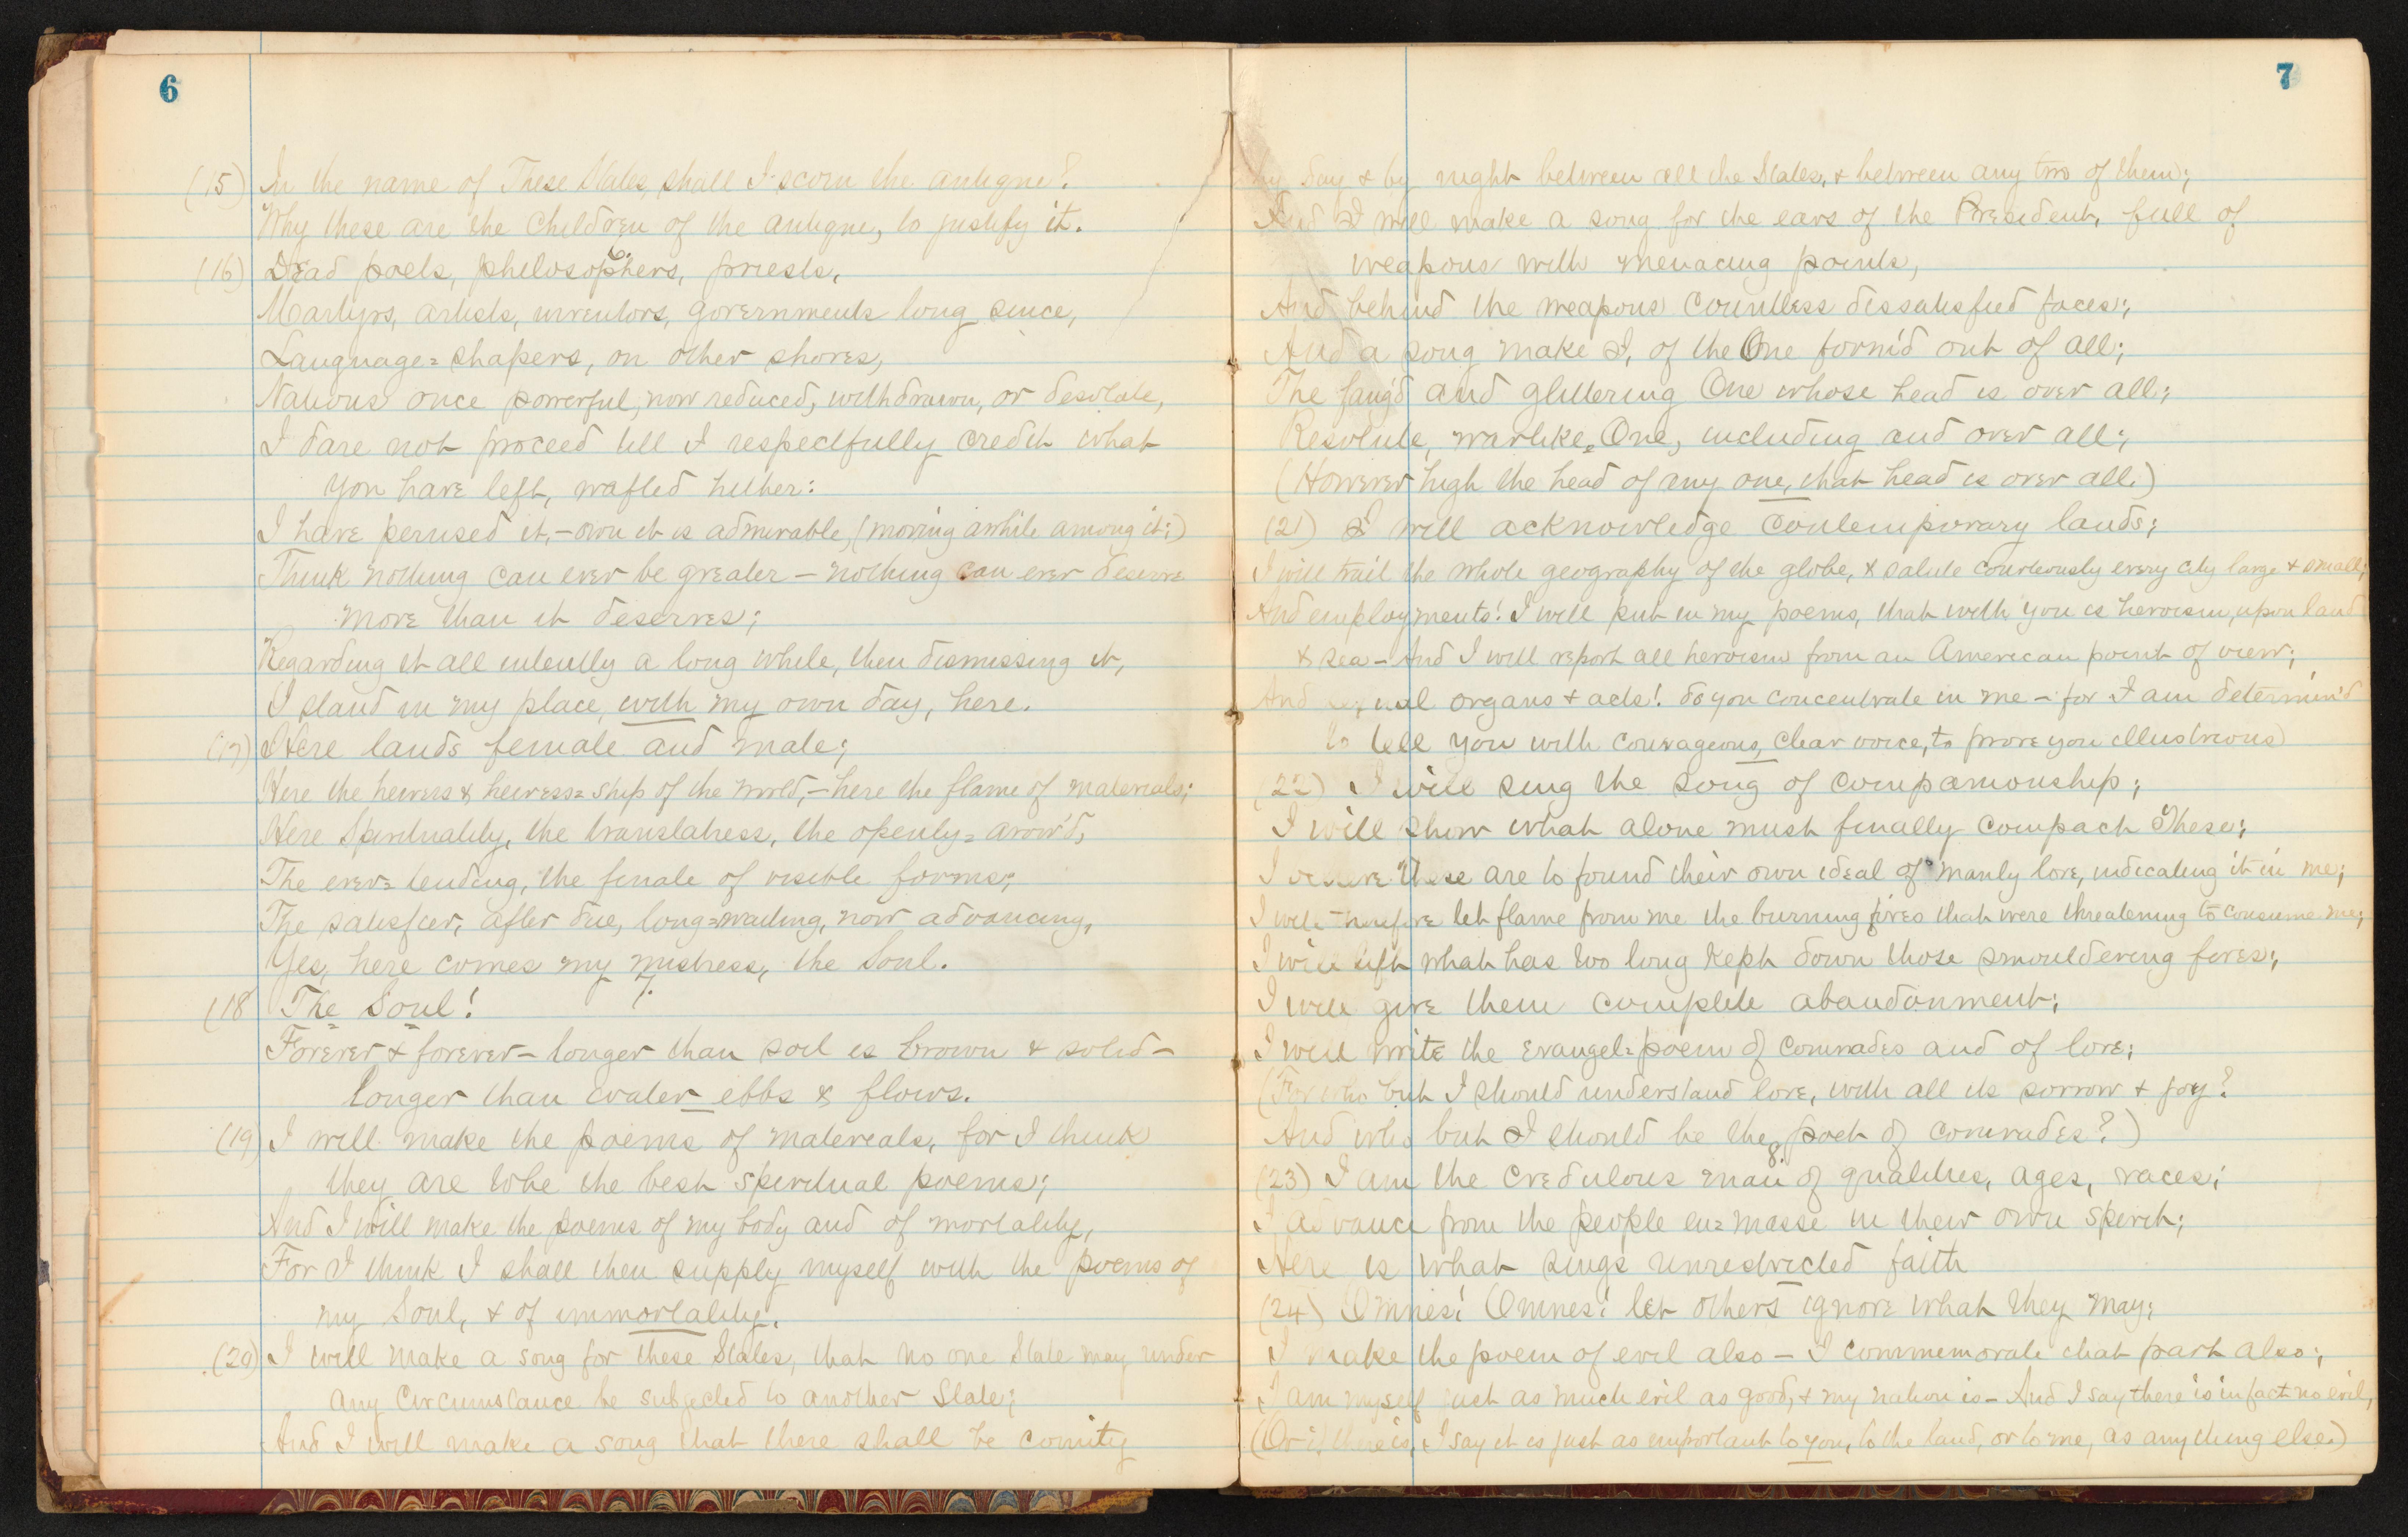 6
(15) In the name of These States, shall I scorn the antique?
Why these are the Children of the antique, to justify it.
6.
(16) Dead poets, philosophers, priests,
Martyrs, artists, inventors, governments long since,
Language=shapers, on other shores,
Nations once powerful, now reduced, withdrawn, or desolate,
I dare not proceed till I respectfully credit what
you have left, wafted hither:
I have perused it,—own it is admirable, (moving awhile among it;)
Think nothing can ever be greater — nothing can ever deserve
more than it deserves;
Regarding it all intently a long while, then dismissing it,
I stand in my place, with my own day, here.
(17) Here lands female and male;
Here the heirers & heiress=ship of the world,—here the flame of materials;
Here Spirituality, the translatress, the openly=avow'd,
The ever=tending, the finale of visible forms;
The satisfier, after due, long=waiting, now advancing,
Yes, here comes my mistress, the Soul.
7.
(18 The Soul!
Forever & forever — longer than soil is brown & solid —
longer than water ebbs & flows.
(19) I will make the poems of materials, for I think
they are to be the best spiritual poems;
And I will make the poems of my body and of mortality,
For I think I shall then supply myself with the poems of
my Soul, & of immortality.
(20) I will make a song for these States, that no one State may under
any Circumstance be subjected to another State;
And I will make a song that there shall be comity
7
by day & by night between all the States, & between any two of them;
And I will make a song for the ears of the President, full of
weapons with menacing points,
And behind the weapons Countless dissatisfied faces;
And a song make I, of the One form'd out of all;
The fang'd and glittering One whose head is over all;
Resolute, warlike, One, including and over all;
(However high the head of any one, that head is over all.)
(21) I will acknowledge Contemporary lands;
I will trail the whole geography of the globe, & salute courteously every city large & small;
And employments! I will put in my poems, that with you is heroism, upon land
& sea — And I will report all heroism from an American point of view;
And sexual organs & acts! do you concentrate in me — for I am determin'd
to tell you with courageous, clear voice, to prove you illustrious
(22) I will sing the song of companionship;
I will show what alone must finally compact These;
I believe These are to found their own ideal of manly love, indicating it in me;
I will therefore let flame from me the burning fires that were threatening to consume me;
I will lift what has too long kept down those smouldering fires;
I will give them complete abandonment;
I will write the evangel=poem of Comrades and of love;
(For who but I should understand love, with all its sorrow & joy?
And who but I should be the poet of comrades?)
8.
(23) I am the Credulous man of qualities, ages, races;
I advance from the people en=masse in their own spirit;
Here is what sings unrestricted faith
(24) Omnes! Omnes! let others ignore what they may;
I make the poem of evil also — I commemorate that part also;
I am myself just as much evil as good, & my nation is — And I say there is in fact no evil,
(Or if there is, I say it is just as important to you, to the land, or to me, as any thing else.)